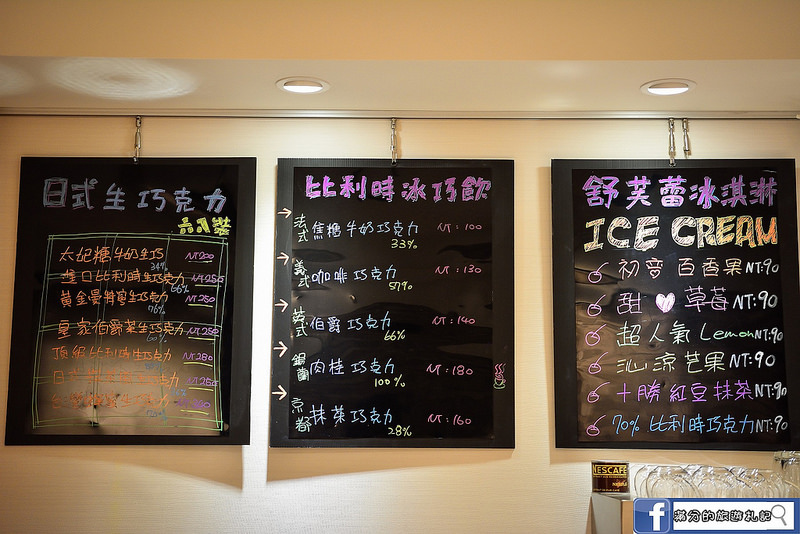 日式生巧克力
六入裝
太妃糖牛奶生巧 NT200
34%
進口比利時生巧克力 NT250
66%
黃金曼特寧生巧克力 NT250
76%
皇家伯爵茶生巧克力 NT250
頂級比利時生巧克力 NT280
日式 生巧克力 NT250
生巧克力
比利時冰巧飲
法式 焦糖牛奶巧克力 NT:100
33%
義式 咖啡巧克力 NT:130
57%
英式 伯爵巧克力 NT:140
66%
錫蘭 肉桂巧克力 NT:180
100%
京都 抹茶巧克力 NT:160
28%
舒芙蕾冰淇淋
ICE CREAM
初戀百香果 NT:90
甜♥草莓 NT:90
超人氣Lemon NT:90
沁涼芒果 NT:90
十勝紅豆抹茶 NT:90
70%比利時巧克力 NT:90
NESCAFÉ
f 滿分的旅遊札記